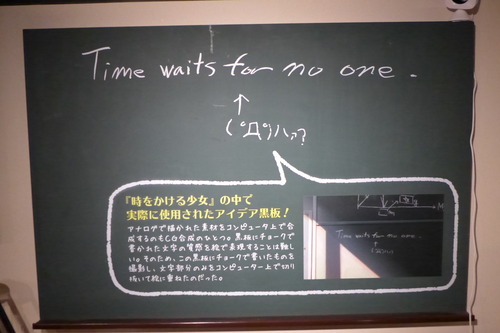 Time waits for no one.
↑
( ゜Д゜)ハァ?
『時をかける少女』の中で
実際に使用されたアイデア黒板!
アナログで描かれた素材をコンピュータ上で合
成するのもCG合成のひとつ。黒板にチョークで
書かれた文字の質感を絵で表現することは難し
い。そのため、この黒板にチョークで書いたものを
撮影し、文字部分のみをコンピューター上で切り
抜いて絵に重ねたのだった。
Time waits for no one.
↑